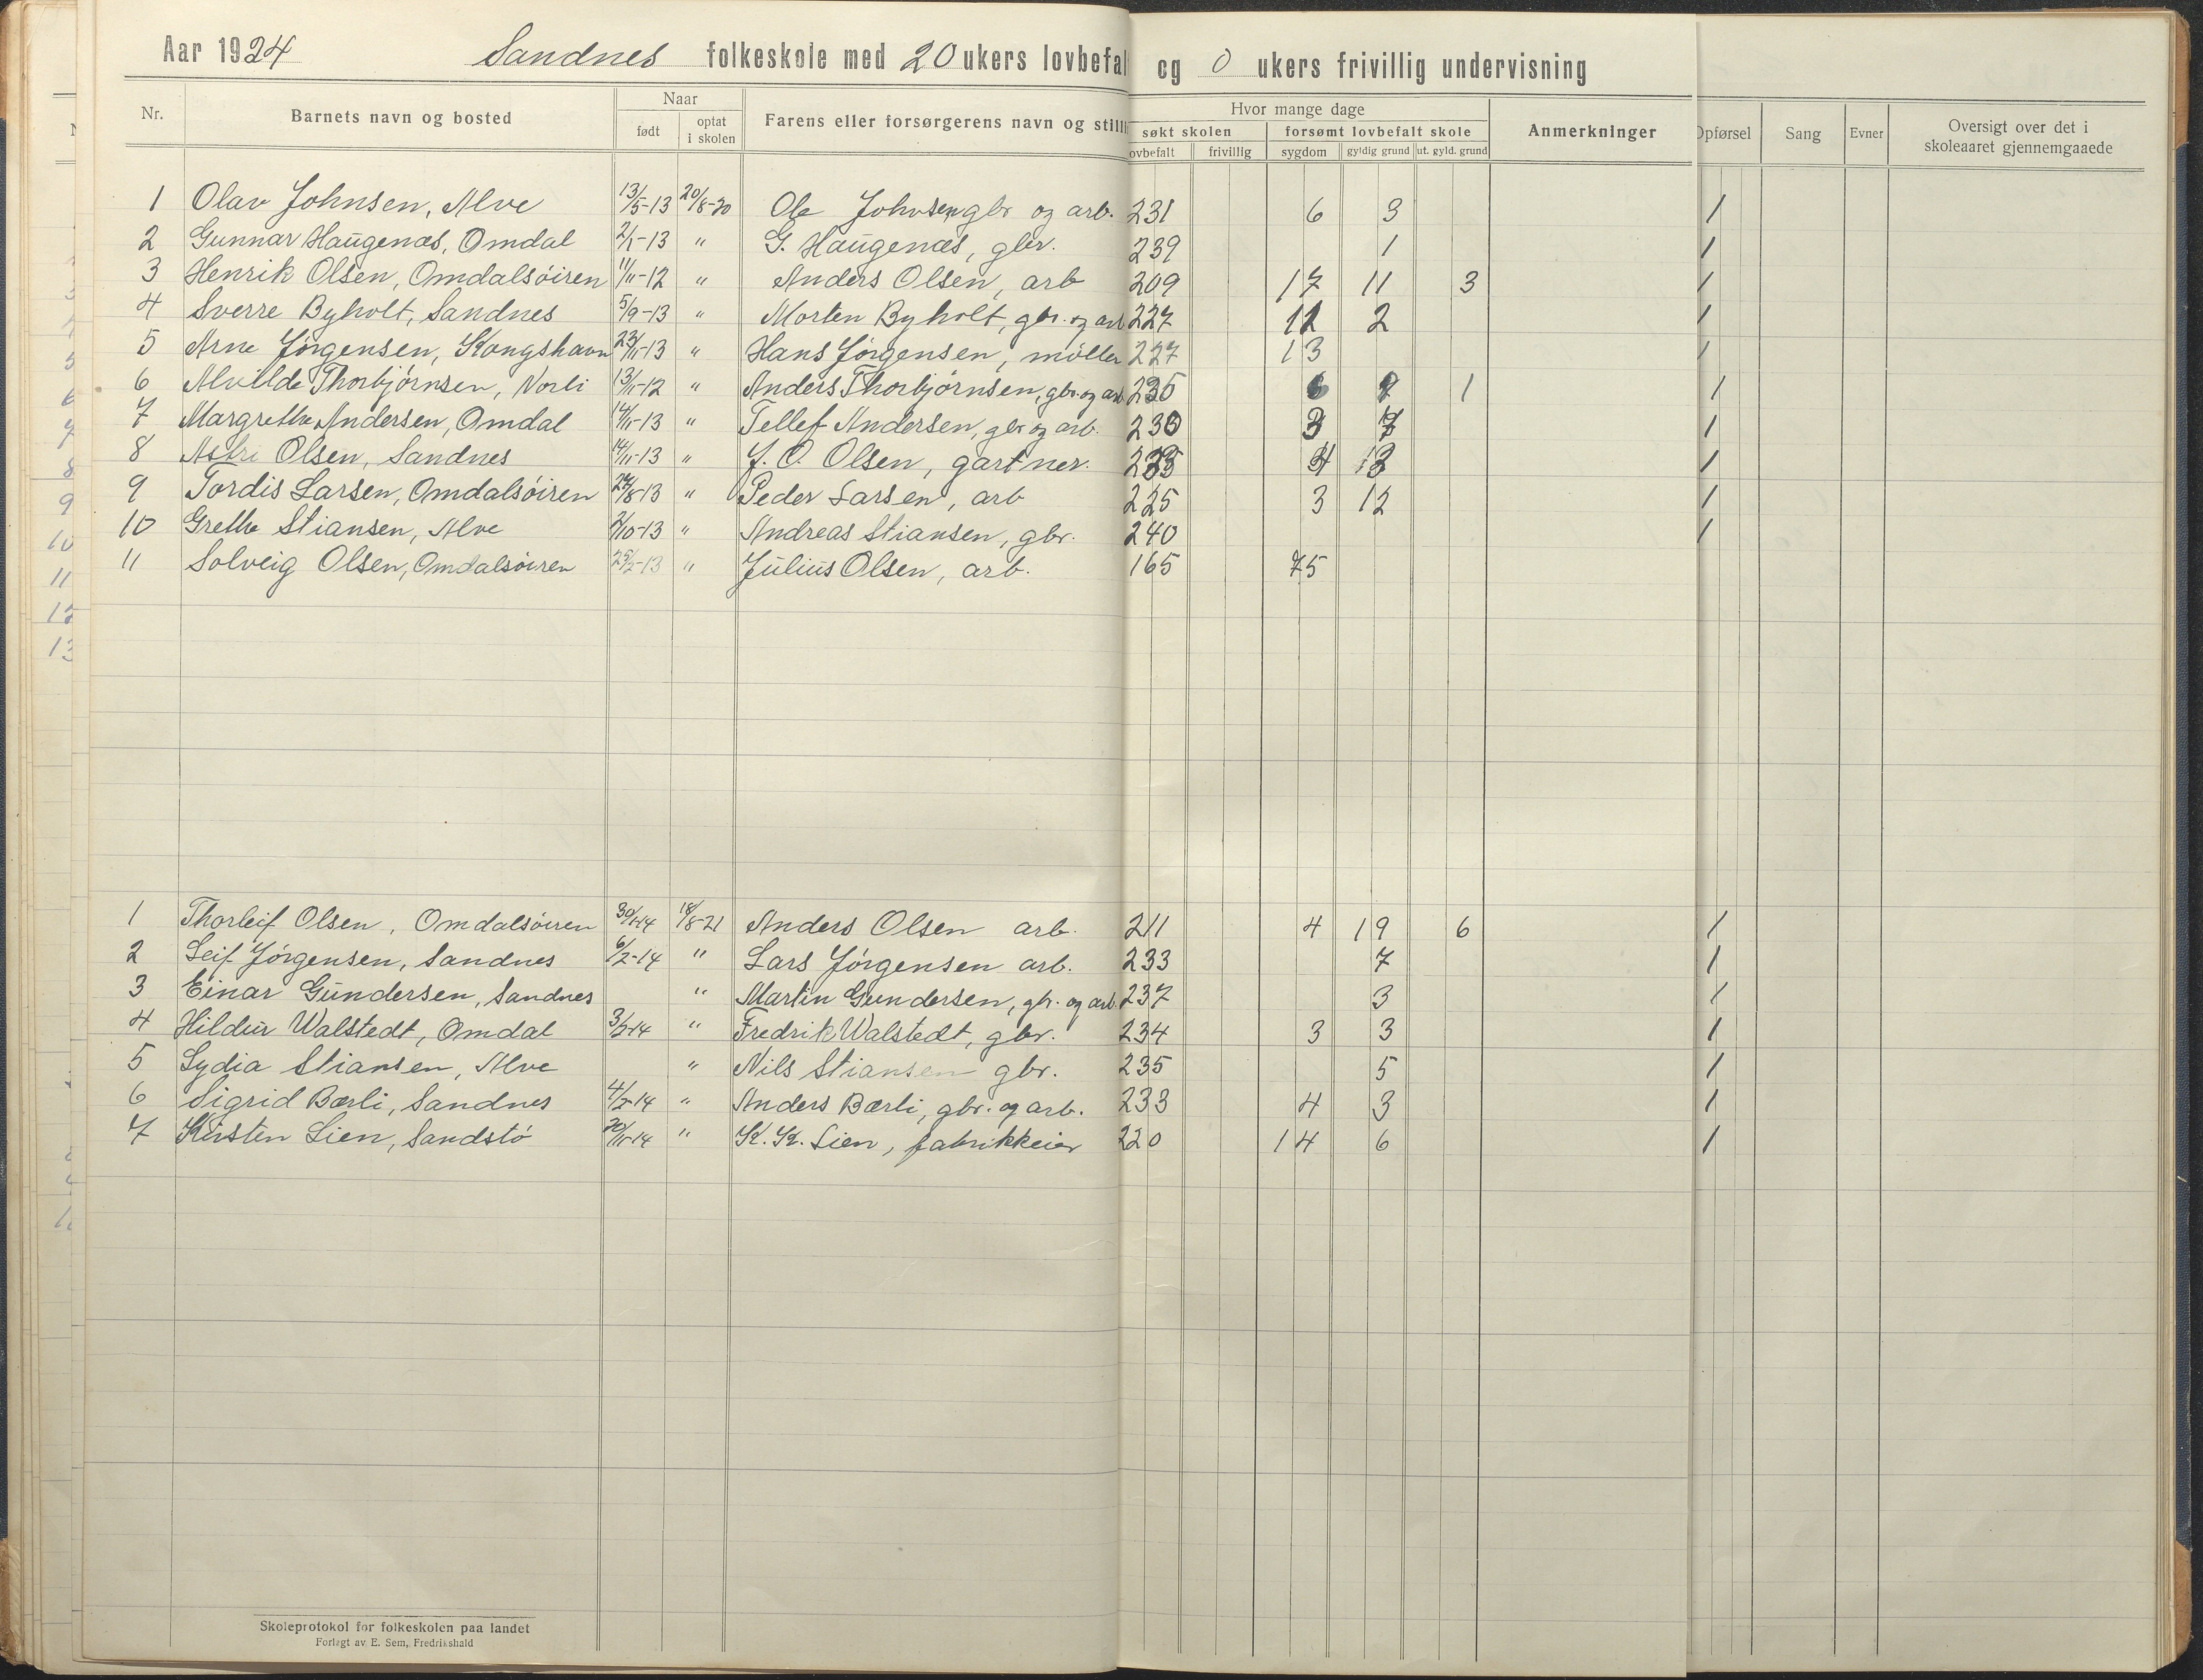 Aar 1924 Sandnes folkeskole med 20 ukers lovbefal og 0 ukers frivillig undervisning
Nr. Barnets navn og bosted Naar født optat i skolen Farens eller forsørgerens navn og stilli Hvor mange dage søkt skolen ovbefalt frivillig forsømt lovbefalt skole sygdom gyldig grund ut. gyld. grund Anmerkninger Opførsel Sang Evner Oversigt over det i skoleaaret gjennemgaaede
1 Olav Johnsen, Alve 13/5-13 20/8-20 Ole Johnsen gbr og arb. 231 6 3 1
2 Gunnar Haugenæs, Omdal 2/1-13 " G. Haugenæs, gbr. 239 1 1
3 Henrik Olsen, Omdalsøiren 11/11-12 " Anders Olsen, arb 209 17 11 3 1
4 Sverre Byholt, Sandnes 5/9-13 " Morten Byholt, gbr. og arb 227 11 2 1
5 Arne Jørgensen, Kongshavn 23/11-13 " Hans Jørgensen, møller 227 13 1
6 Alvilde Thorbjørnsen, Norli 13/11-12 " Anders Thorbjørnsen, gbr. og arb 1 1
7 Margrethe Andersen, Omdal 14/11-13 " Tellef Andersen, gbr og arb. 230 3 1
8 Astri Olsen, Sandnes 14/11-13 " J. O. Olsen, gartner. 4 13 1
9 Tordis Larsen, Omdalsøiren 24/8-13 " Peder Larsen, arb 225 3 12 1
10 Grethe Stiansen, Alve 2/10-13 " Andreas Stiansen, gbr. 240 1
11 Solveig Olsen, Omdalsøiren 25/2-13 " Julius Olsen, arb. 165 75
1 Thorleif Olsen, Omdalsøiren 30/1-14 18/8-21 Anders Olsen arb. 211 4 19 6 1
2 Leif Jørgensen, Sandnes 6/2-14 " Lars Jørgensen arb. 233 7 1
3 Einar Gundersen, Sandnes " Martin Gundersen, gbr. og arb. 237 3 1
4 Hildur Walstedt, Omdal 3/2-14 " Fredrik Walstedt, gbr. 234 3 3 1
5 Lydia Stiansen, Alve " Nils Stiansen gbr. 235 5 1
6 Sigrid Bærli, Sandnes 4/2-14 " Anders Bærli, gbr. og arb. 233 4 3 1
7 Kirsten Lien, Sandstø 20/11-14 " K. K. Lien, fabrikkeier 220 14 6 1
Skoleprotokol for folkeskolen paa landet
Forlagt av E. Sem, Fredrikshald